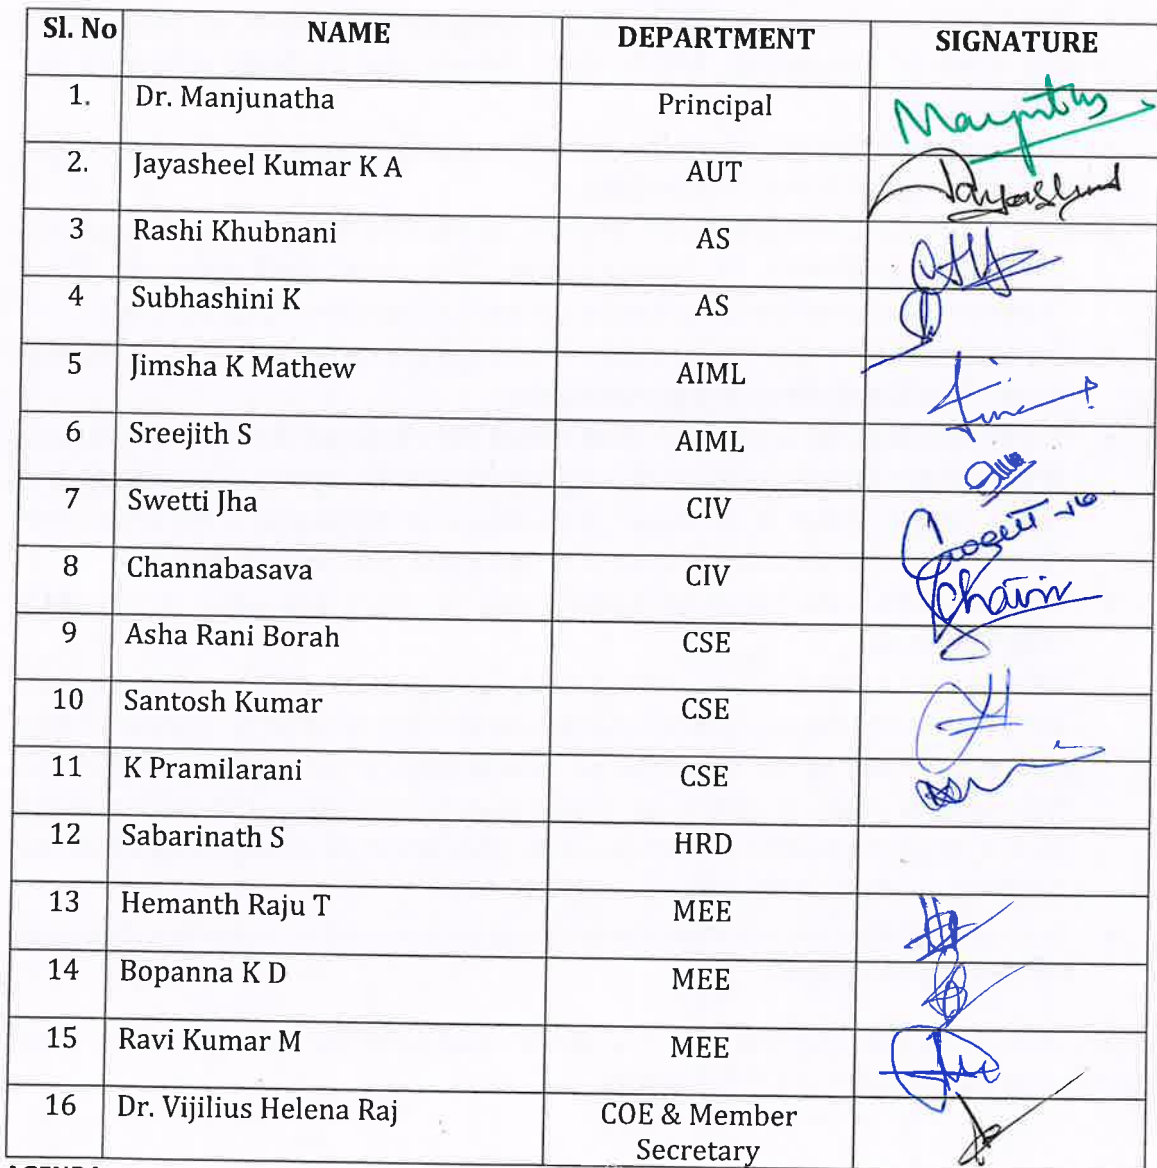 Sl. No NAME DEPARTMENT SIGNATURE
1. Dr. Manjunatha Principal
2. Jayasheel Kumar K A AUT
3 Rashi Khubnani AS
4 Subhashini K AS
5 Jimsha K Mathew AIML
6 Sreejith S AIML
7 Swetti Jha CIV
8 Channabasava CIV
9 Asha Rani Borah CSE
10 Santosh Kumar CSE
11 K Pramilarani CSE
12 Sabarinath S HRD
13 Hemanth Raju T MEE
14 Bopanna K D MEE
15 Ravi Kumar M MEE
16 Dr. Vijilius Helena Raj COE & Member
Secretary